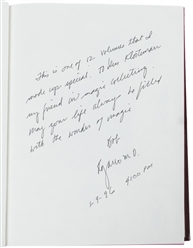 This is one of 12 volumes that I
made up special. To Ken Klosterman
my friend in magic collecting.
May your life always be filled
with the wonder of magic
Bob
M.D.
1-9-96